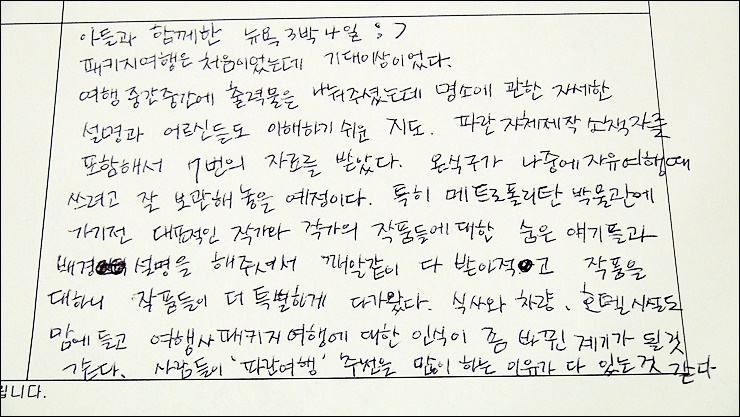 아들과 함께한 뉴욕 3박4일 :7
패키지여행은 처음이었는데 기대이상이었다.
여행 중간중간에 출력물은 나눠주셨는데 명소에 관한 자세한
설명과 어르신들도 이해하기 쉬운 지도. 파란자체제작 소책자를
포함해서 7번의 자료를 받았다. 온식구가 나중에 자유여행때
쓰려고 잘 보관해 놓을 예정이다. 특히 메트로폴리탄 박물관에
가기전 대표적인 작가와 각각의 작품들에 대한 숨은 얘기들과
배경 설명을 해주셔서 깨알같이 다 받아적고 작품을
대하니 작품들이 더 특별하게 다가왔다. 식사와 차량, 호텔시설도
맘에 들고 여행사패키지여행에 대한 인식이 좀 바뀐 계기가 될것
같은다. 사람들이 '파란여행' 추천을 많이 하는 이유가 다 있는것 같다
립니다.